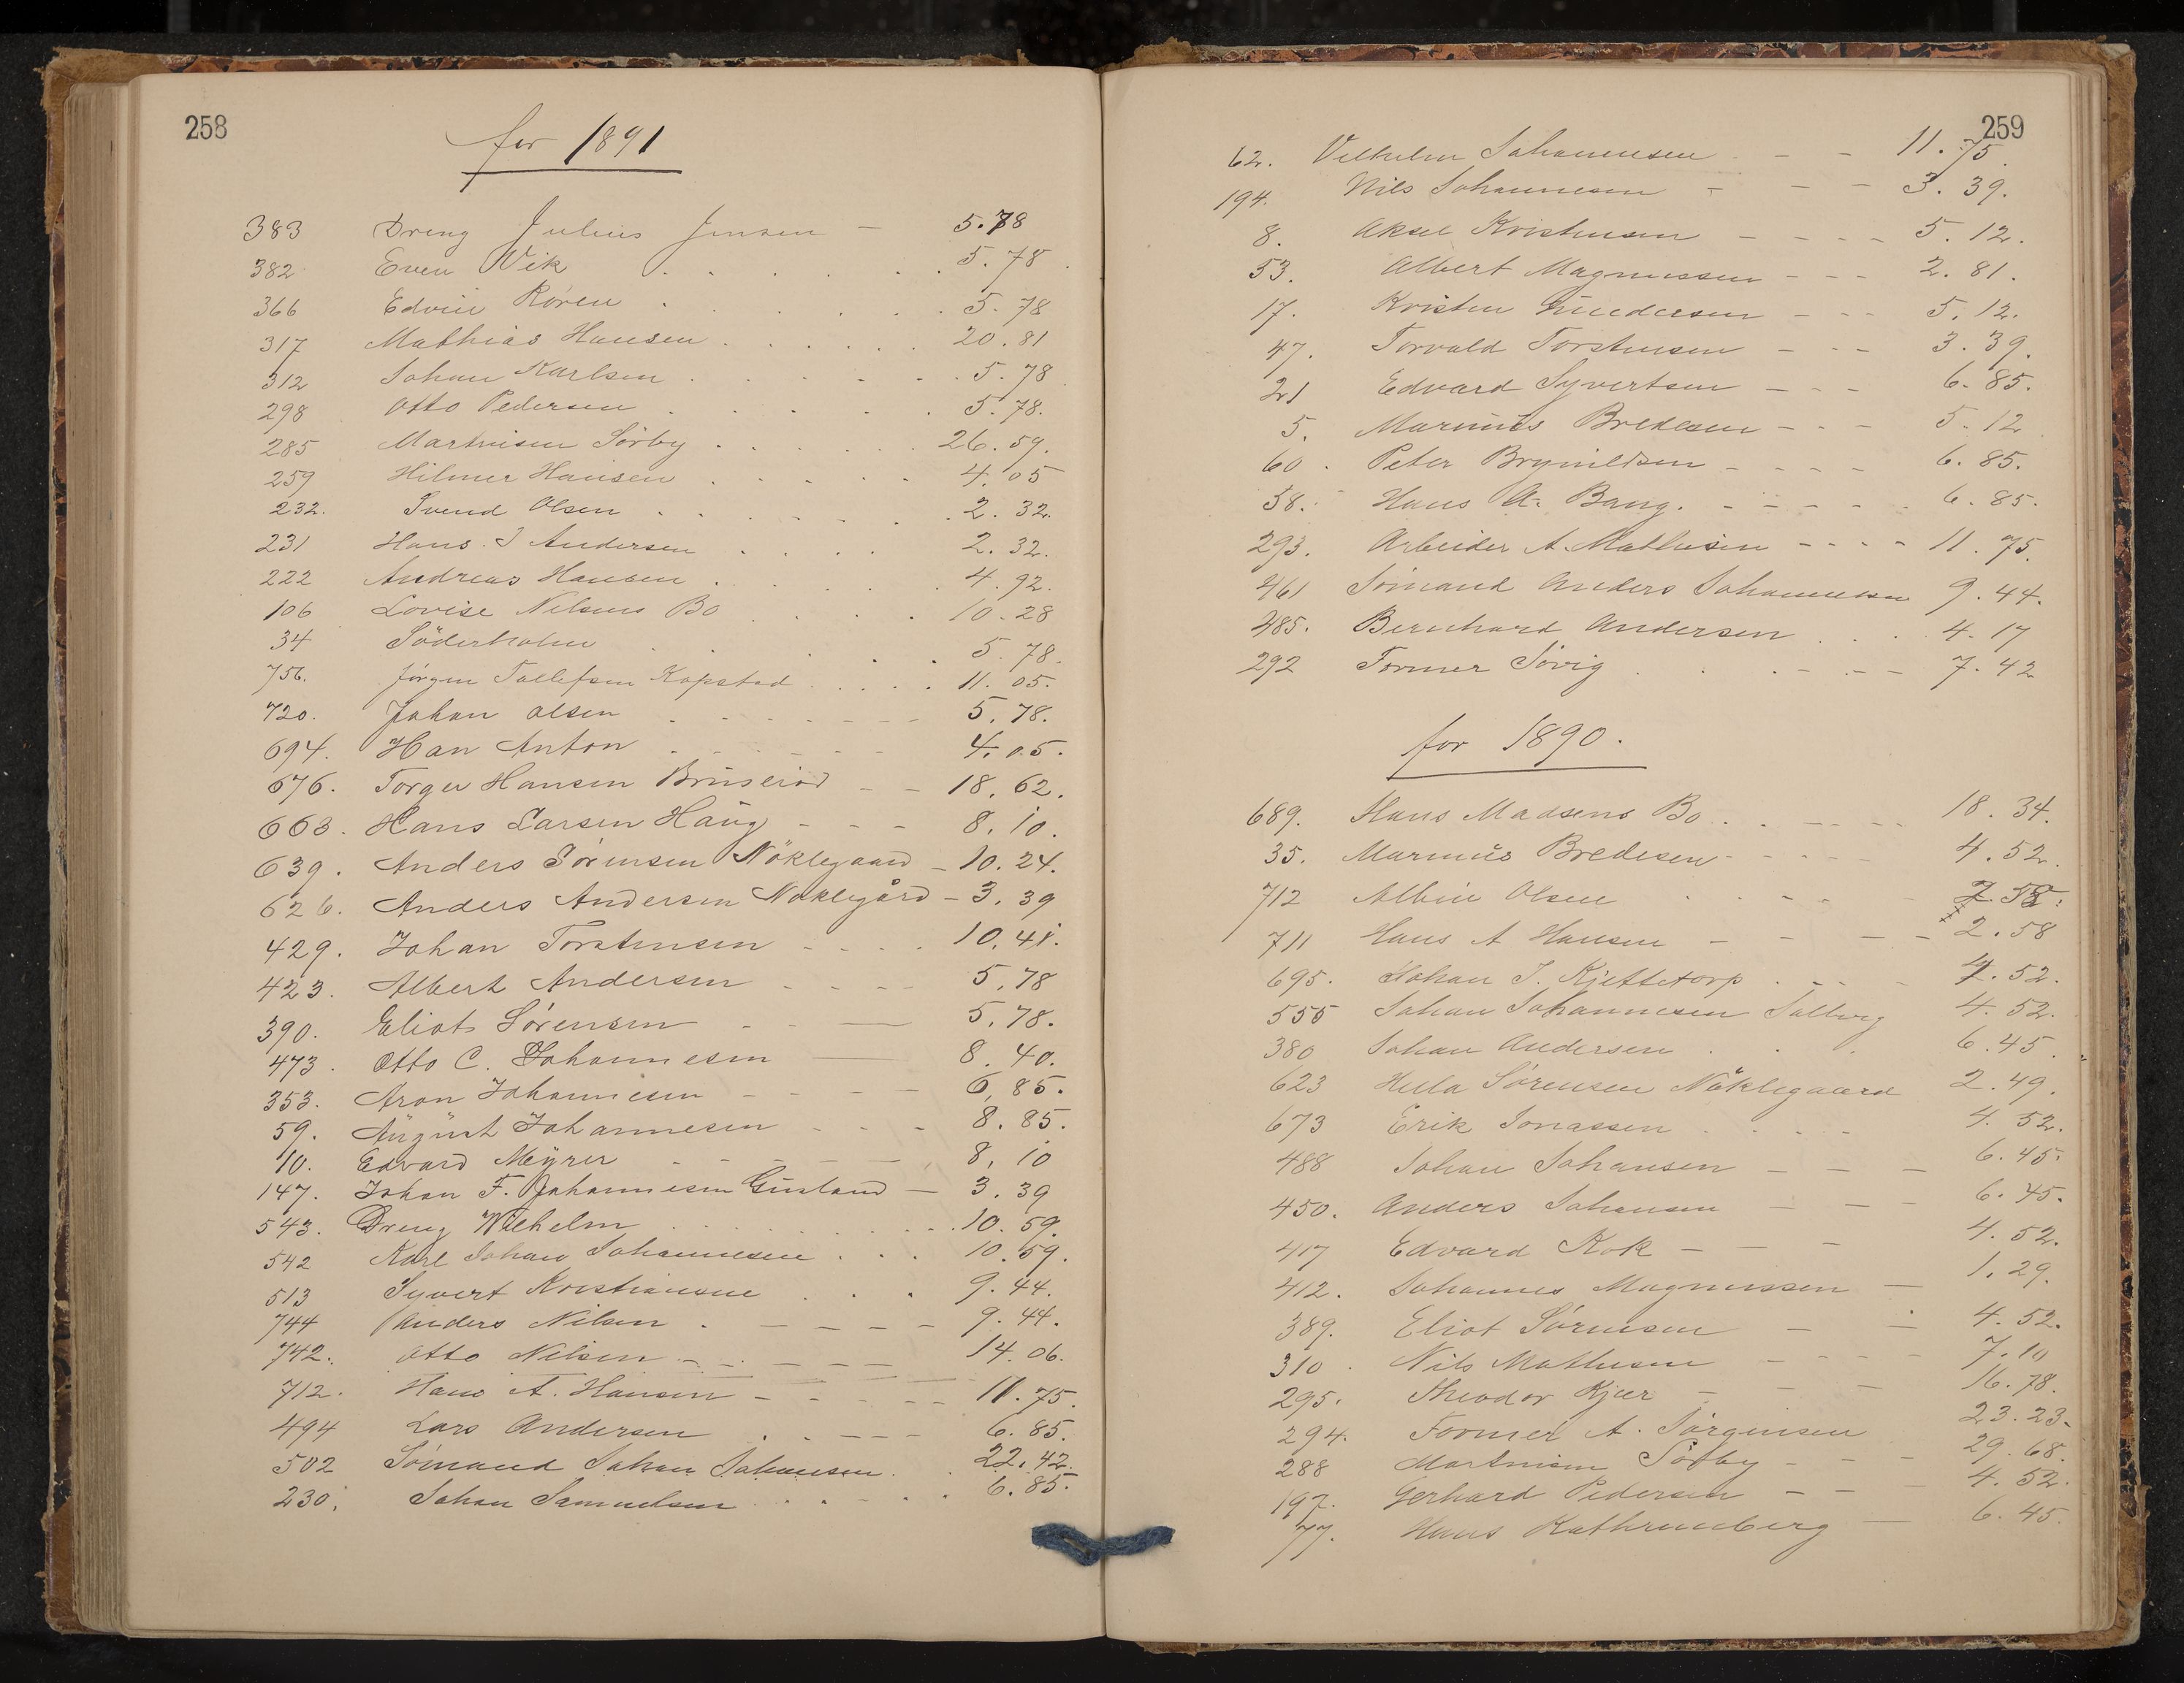 258
for 1891
383 Dreng Julius Jensen – 5.78
382 Even Vik . . . . . . 5.78
366 Edvin Røren . . . . . . 5.78
317 Mathias Hansen . . . . . . 20.81
312 Johan Karlsen . . . . . . 5.78
298 Otto Pedersen . . . . . 5.78.
285 Martinisen Sørby . . . . . . 26.59.
259 Hilmer Hansen . . . . . 4.05
232. Svend Olsen . . . . . . 2.32.
231 Hans J Andersen . . . . 2.32.
222 Andreas Hansen . . . . 4.92.
106 Lovise Nilsens Bo . . . . 10.28
34 Söderholm . . . . . 5.78.
756. Jørgen Tollefsen Kopstad . . . . . 11.05.
720. Johan Olsen . - - - - - - 5.78.
694. Han Anton . - . - - - 4.05.
676. Torger Hansen Brüserød - - 18.62.
663. Hans Larsen Haüg - - - 8.10.
639. Anders Sørensen Nöklegaard - 10.24.
626. Anders Andersen Nøklegård - 3.39
429. Johan Torstensen - - - - 10.41.
423. Albert Andersen - - - - 5.78
390. Eliot Sørensen - - — 5.78.
473. Otto C. Johannesen — — 8.40.
353. Aron Johannesen - - - - 6.85.
59. Aügüst Johannesen - - - 8.85.
10. Edvard Meÿrer - - - - - - 8.10
147. Johan F. Johannesen Güsland — 3.39
543. Dreng Wilhelm . . . . . . . 10.59.
542 Karl Johan Johannesen . . . 10.59.
513 Syvert Kristiansen . . . 9.44.
744 Anders Nilsen . - - - - - 9.44.
742. Otto Nilsen - - - - - - 14.06.
712. Hans A. Hansen - - - - - 11.75.
494 Lars Andersen . . - - - 6.85.
502 Sømand Johan Johansen . . 22.42.
230. Johan Samuelsen . . - . . 6.85.
259
62. Vilhelm Johannesen - - - 11.75.
194. Nils Johannesen - - - - 3.39.
8. Aksel Kristensen - - - - 5.12.
53. Albert Magnussen - - - 2.81.
17. Kristen Gundersen - - - 5.12.
47. Torvald Torstensen - - - 3.39.
21 Edvard Syvertsen - - - 6.85.
5. Marinüs Bredesen - - - 5.12
60. Peter Brynildsen - - - - 6.85.
58. Hans A. Bang. - - - - - 6.85.
293. Arbeider A. Mathisen - - - - 11.75.
461 Sømand Anders Johannesen 9.44.
485. Bernhard Andersen . . . 4.17
292 Former Søvig . . - - - - 7.42
for 1890.
689. Hans Madsens Bo . . - - - - 18.34.
35. Marinüs Bredesen - - - - - 4.52.
712 Albin Olsen . . - - - 2.58.
711 Hans A Hansen - - - - 2.58
695. Johan J. Kjettetorp . - - - 4.52.
555 Johan Johannesen Solberg 4.52.
380 Johan Andersen . . . 6.45.
623 Hella Sørensen Nöklegaard 2.49.
673 Erik Jonassen . . . . 4.52.
488 Johan Johansen - - - 6.45.
450. Anders Johansen - - - 6.45.
417 Edvard Kok - - - 4.52.
412. Johannes Magnussen — 1.29.
389. Eliot Sørensen - - 4.52.
310. Nils Mathisen - - - - 7.10
295. Theodor Kjær - - - 16.78.
294. Former A. Jørgensen 23.23.
288 Martinisen Sørby - - - 29.68.
197. Gerhard Pedersen - - - 4.52.
77. Hans Kathrineberg — 6.45.